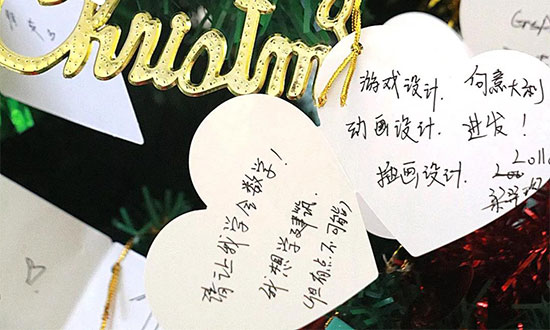 Christm
请让我学会数学!
我想学建筑.
但有点不可能
游戏设计. 向意大利
动画设计. 进发!
插画设计. Lollo